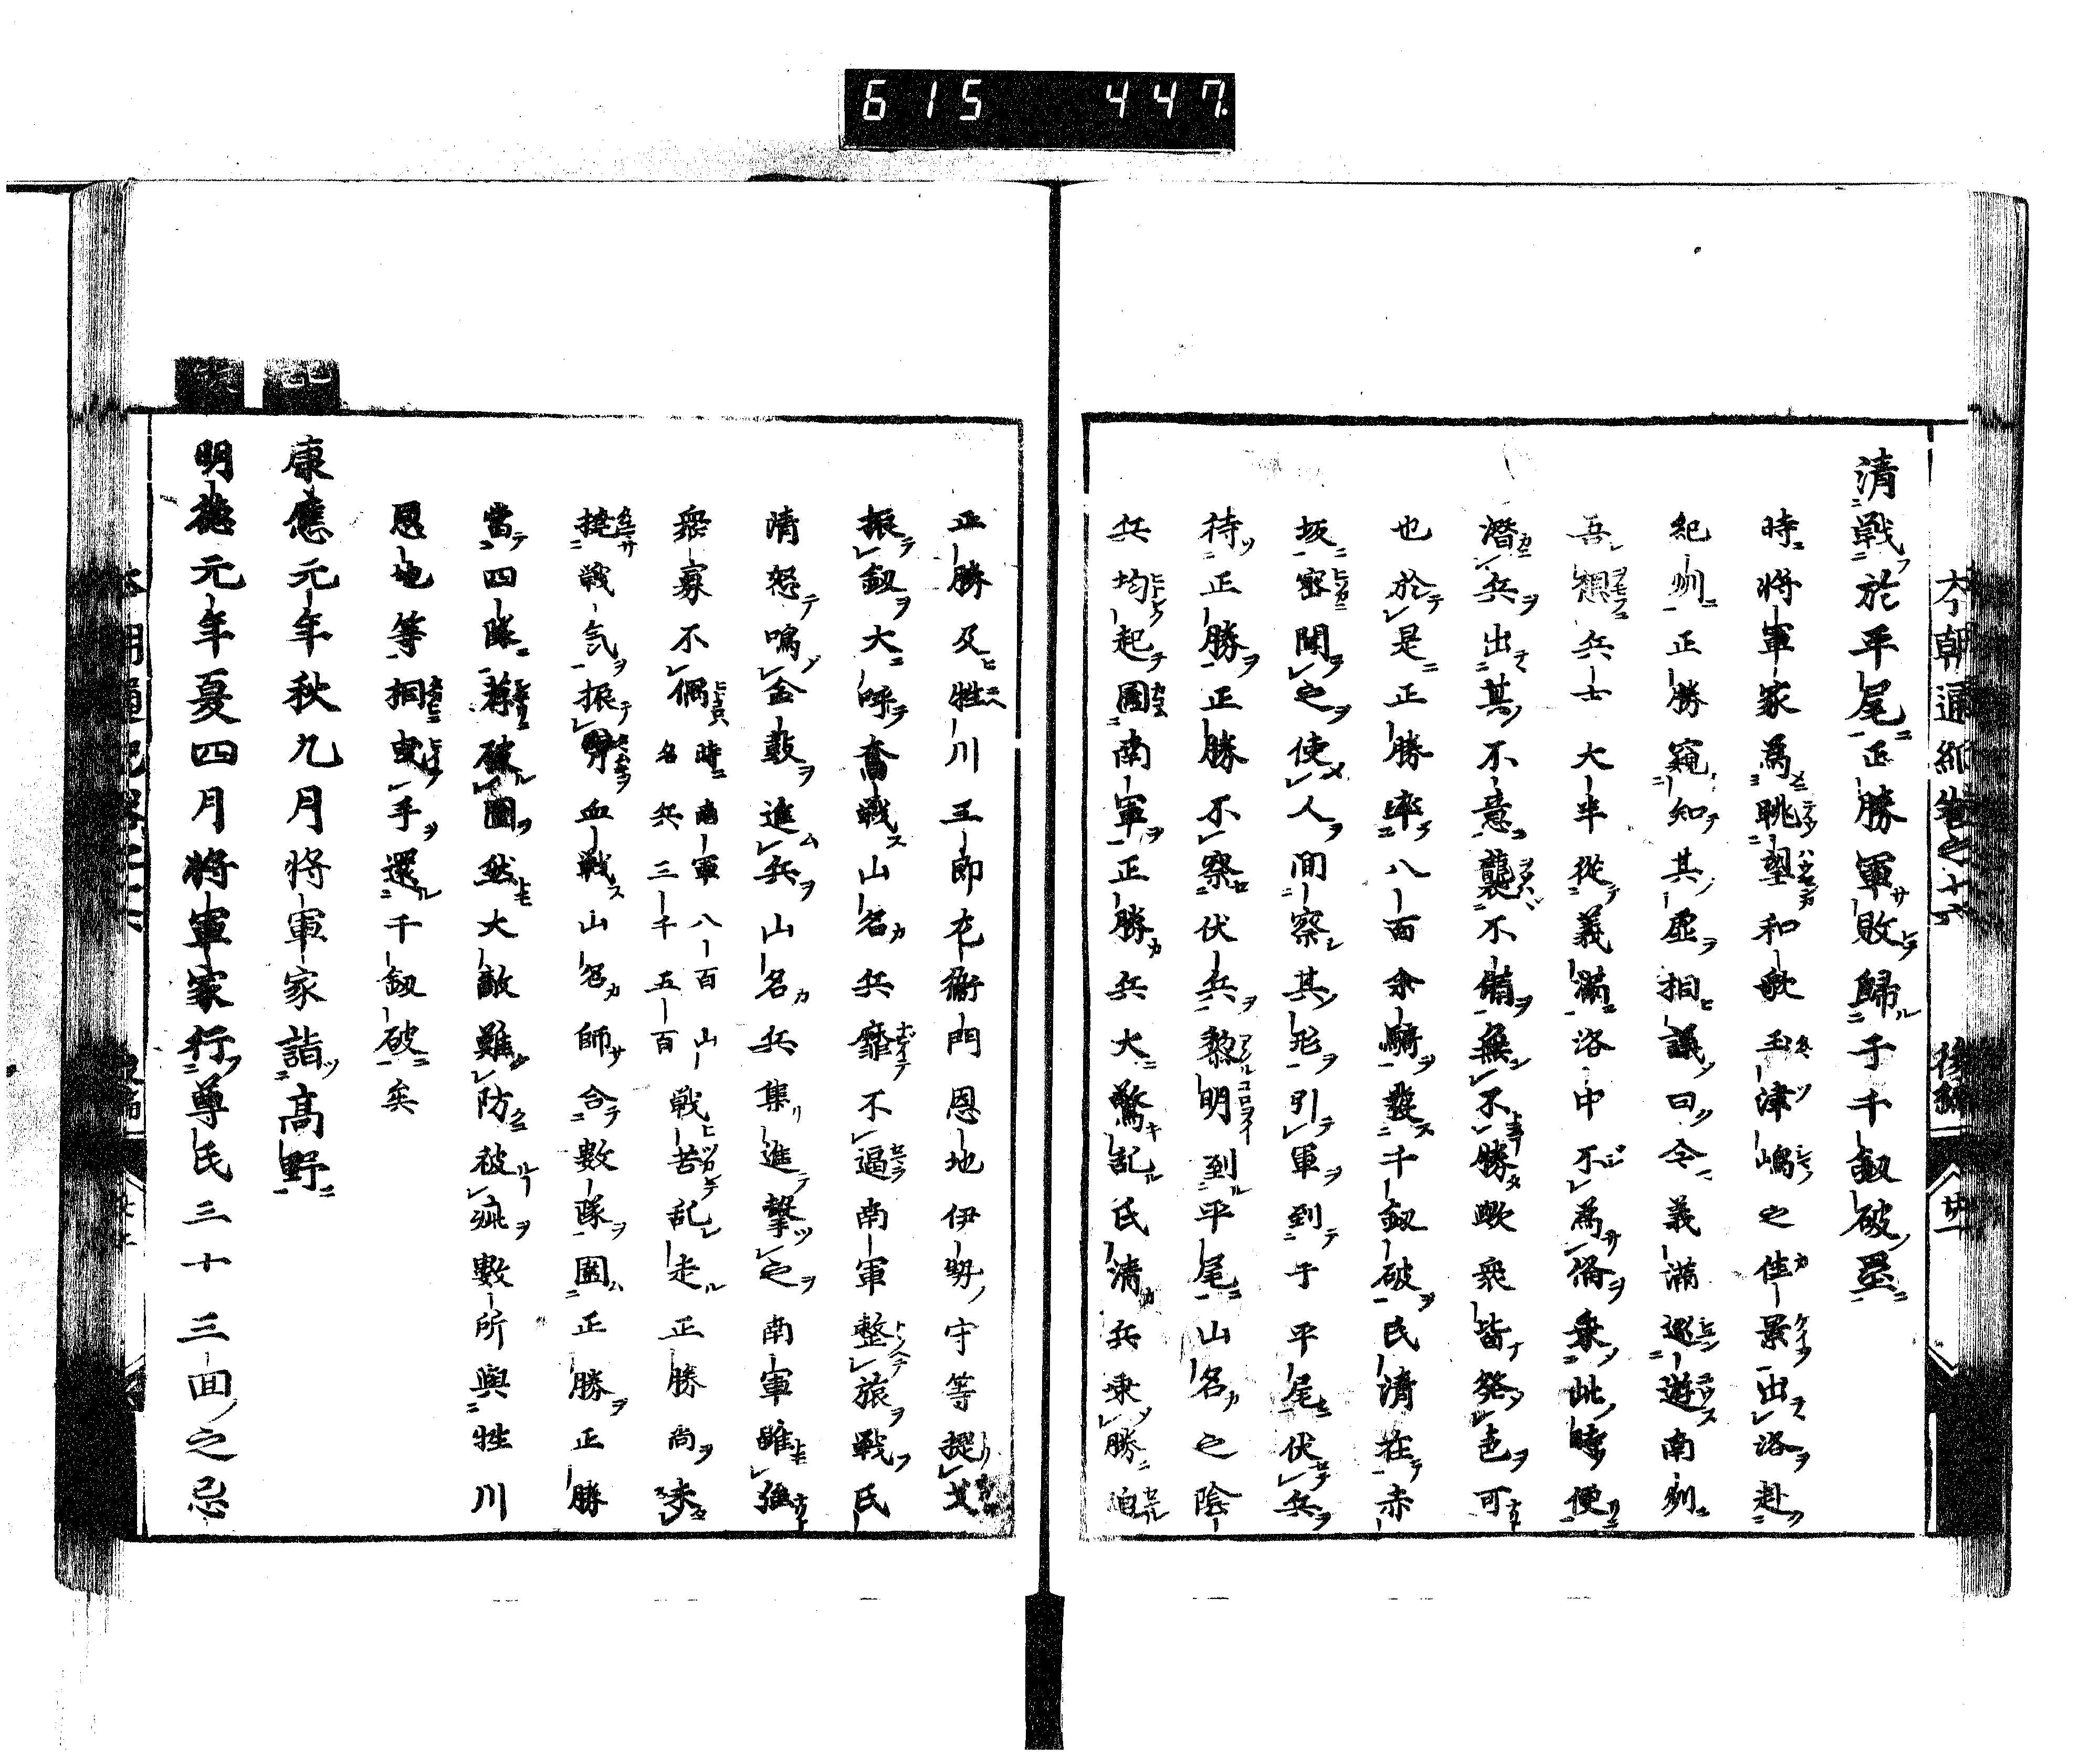 615 447
清戰於平尾正勝軍敗歸于千劔破壘
時將軍家爲眺望和歌玉津嶋之佳景出洛赴
紀刕正勝窺知其虛相議曰今義滿遊南刕
吾想兵士大半從義滿洛中不爲備乗此時便
潛兵出其不意襲不備無不勝歟衆皆発色可
也於是正勝率八百余騎發千劔破氏清在赤
坂密聞之使人間察其形引軍到于平尾伏兵
待正勝正勝不察伏兵黎明到平尾山名之陰
兵均起圍南軍正勝兵大驚記氏清兵乗勝迫
正勝及牲川三郎左衞門恩地伊勢守等提
振劔大呼奮戰山名兵靡不逼南軍整旅戰氏
清怒鳴金鼓進兵山名兵集進擊之南軍雖強
衆寡不偶
時南軍八百山
名兵三千五百
戰苦乱走正勝尚未
撓戰気振臂血戰山名師合數隊圍正勝正勝
當四隊破圍然大敵難防被疵數所與牲川
恩地等相曳手還千劔破矣
康應元年秋九月將軍家詣高野
明德元年夏四月將軍家行尊氏三十三回之忌